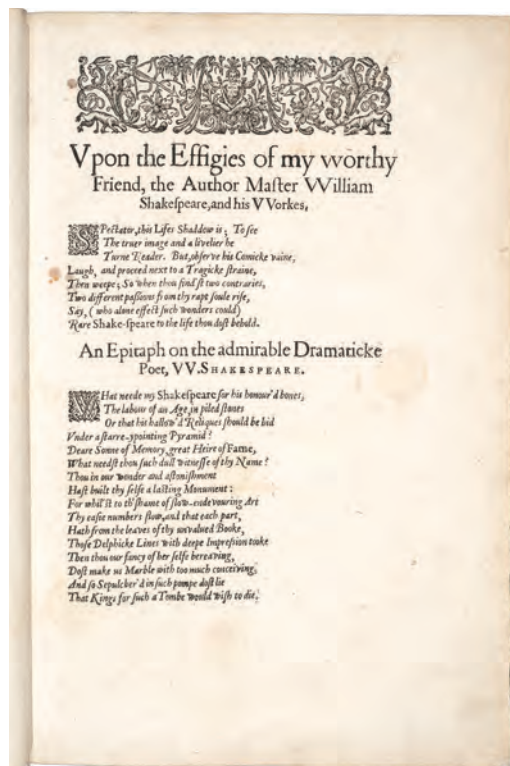 Vpon the Effigies of my worthy
Friend, the Author Maſter VVilliam
Shakeſpeare, and his VVorkes.
SPectator, this Lifes Shaddow is; To ſee
The truer image and a livelier he
Turne Reader. But, obſerve his Comicke vaine,
Laugh, and proceed next to a Tragicke ſtraine,
Then weepe; So when thou find'ſt two contraries,
Two different paſſions from thy rapt ſoule riſe,
Say, (who alone effect ſuch wonders could)
Rare Shake-ſpeare to the life thou doſt behold.
An Epitaph on the admirable Dramaticke
Poet, VV. SHAKESPEARE.
WHat neede my Shakeſpeare for his honour'd bones,
The labour of an Age, in piled ſtones
Or that his hallow'd Reliques ſhould be hid
Vnder a ſtarre-ypointing Pyramid?
Deare Sonne of Memory, great Heire of Fame,
What needſt thou ſuch dull witneſſe of thy Name?
Thou in our wonder and aſtoniſhment
Haſt built thy ſelfe a laſting Monument:
For whil'ſt to th'ſhame of ſlow-endevouring Art
Thy eaſie numbers flow, and that each part,
Hath from the leaves of thy unvalued Booke,
Thoſe Delphicke Lines with deepe Impreſsion tooke
Then thou our fancy of her ſelfe bereaving,
Doſt make us Marble with too much conceiving,
And ſo Sepulcher'd in ſuch pompe doſt lie
That Kings for ſuch a Tombe would wiſh to die.